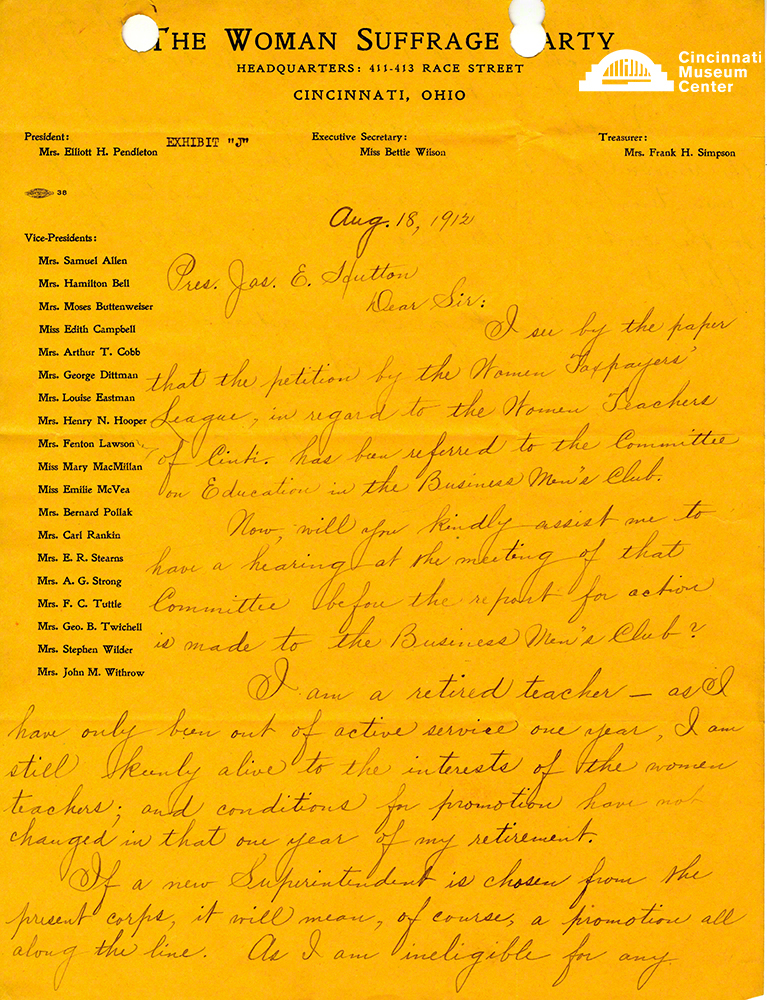 THE WOMAN SUFFRAGE PARTY
HEADQUARTERS: 411-413 RACE STREET
CINCINNATI, OHIO
Cincinnati
Museum
Center
President:
Mrs. Elliott H. Pendleton
EXHIBIT "J"
Executive Secretary:
Miss Bettie Wilson
Treasurer:
Mrs. Frank H. Simpson
38
Aug. 18, 1912
Vice-Presidents:
Mrs. Samuel Allen
Mrs. Hamilton Bell
Mrs. Moses Buttenweiser
Miss Edith Campbell
Mrs. Arthur T. Cobb
Mrs. George Dittman
Mrs. Louise Eastman
Mrs. Henry N. Hooper
Mrs. Fenton Lawson
Miss Mary MacMillan
Miss Emilie McVea
Mrs. Bernard Pollak
Mrs. Carl Rankin
Mrs. E. R. Stearns
Mrs. A. G. Strong
Mrs. F. C. Tuttle
Mrs. Geo. B. Twichell
Mrs. Stephen Wilder
Mrs. John M. Withrow
Pres. Jas. E. Hutton
Dear Sir:
I see by the paper
that the petition by the Women Taxpayers'
League, in regard to the Women Teachers
of Cinti. has been referred to the Committee
on Education in the Business Men's Club.
Now, will you kindly assist me to
have a hearing at the meeting of that
Committee before the report for action
is made to the Business Men's Club?
I am a retired teacher — as I
have only been out of active service one year, I am
still keenly alive to the interests of the women
teachers; and conditions for promotion have not
changed in that one year of my retirement.
If a new Superintendent is chosen from the
present corps, it will mean, of course, a promotion all
along the line. As I am ineligible for any